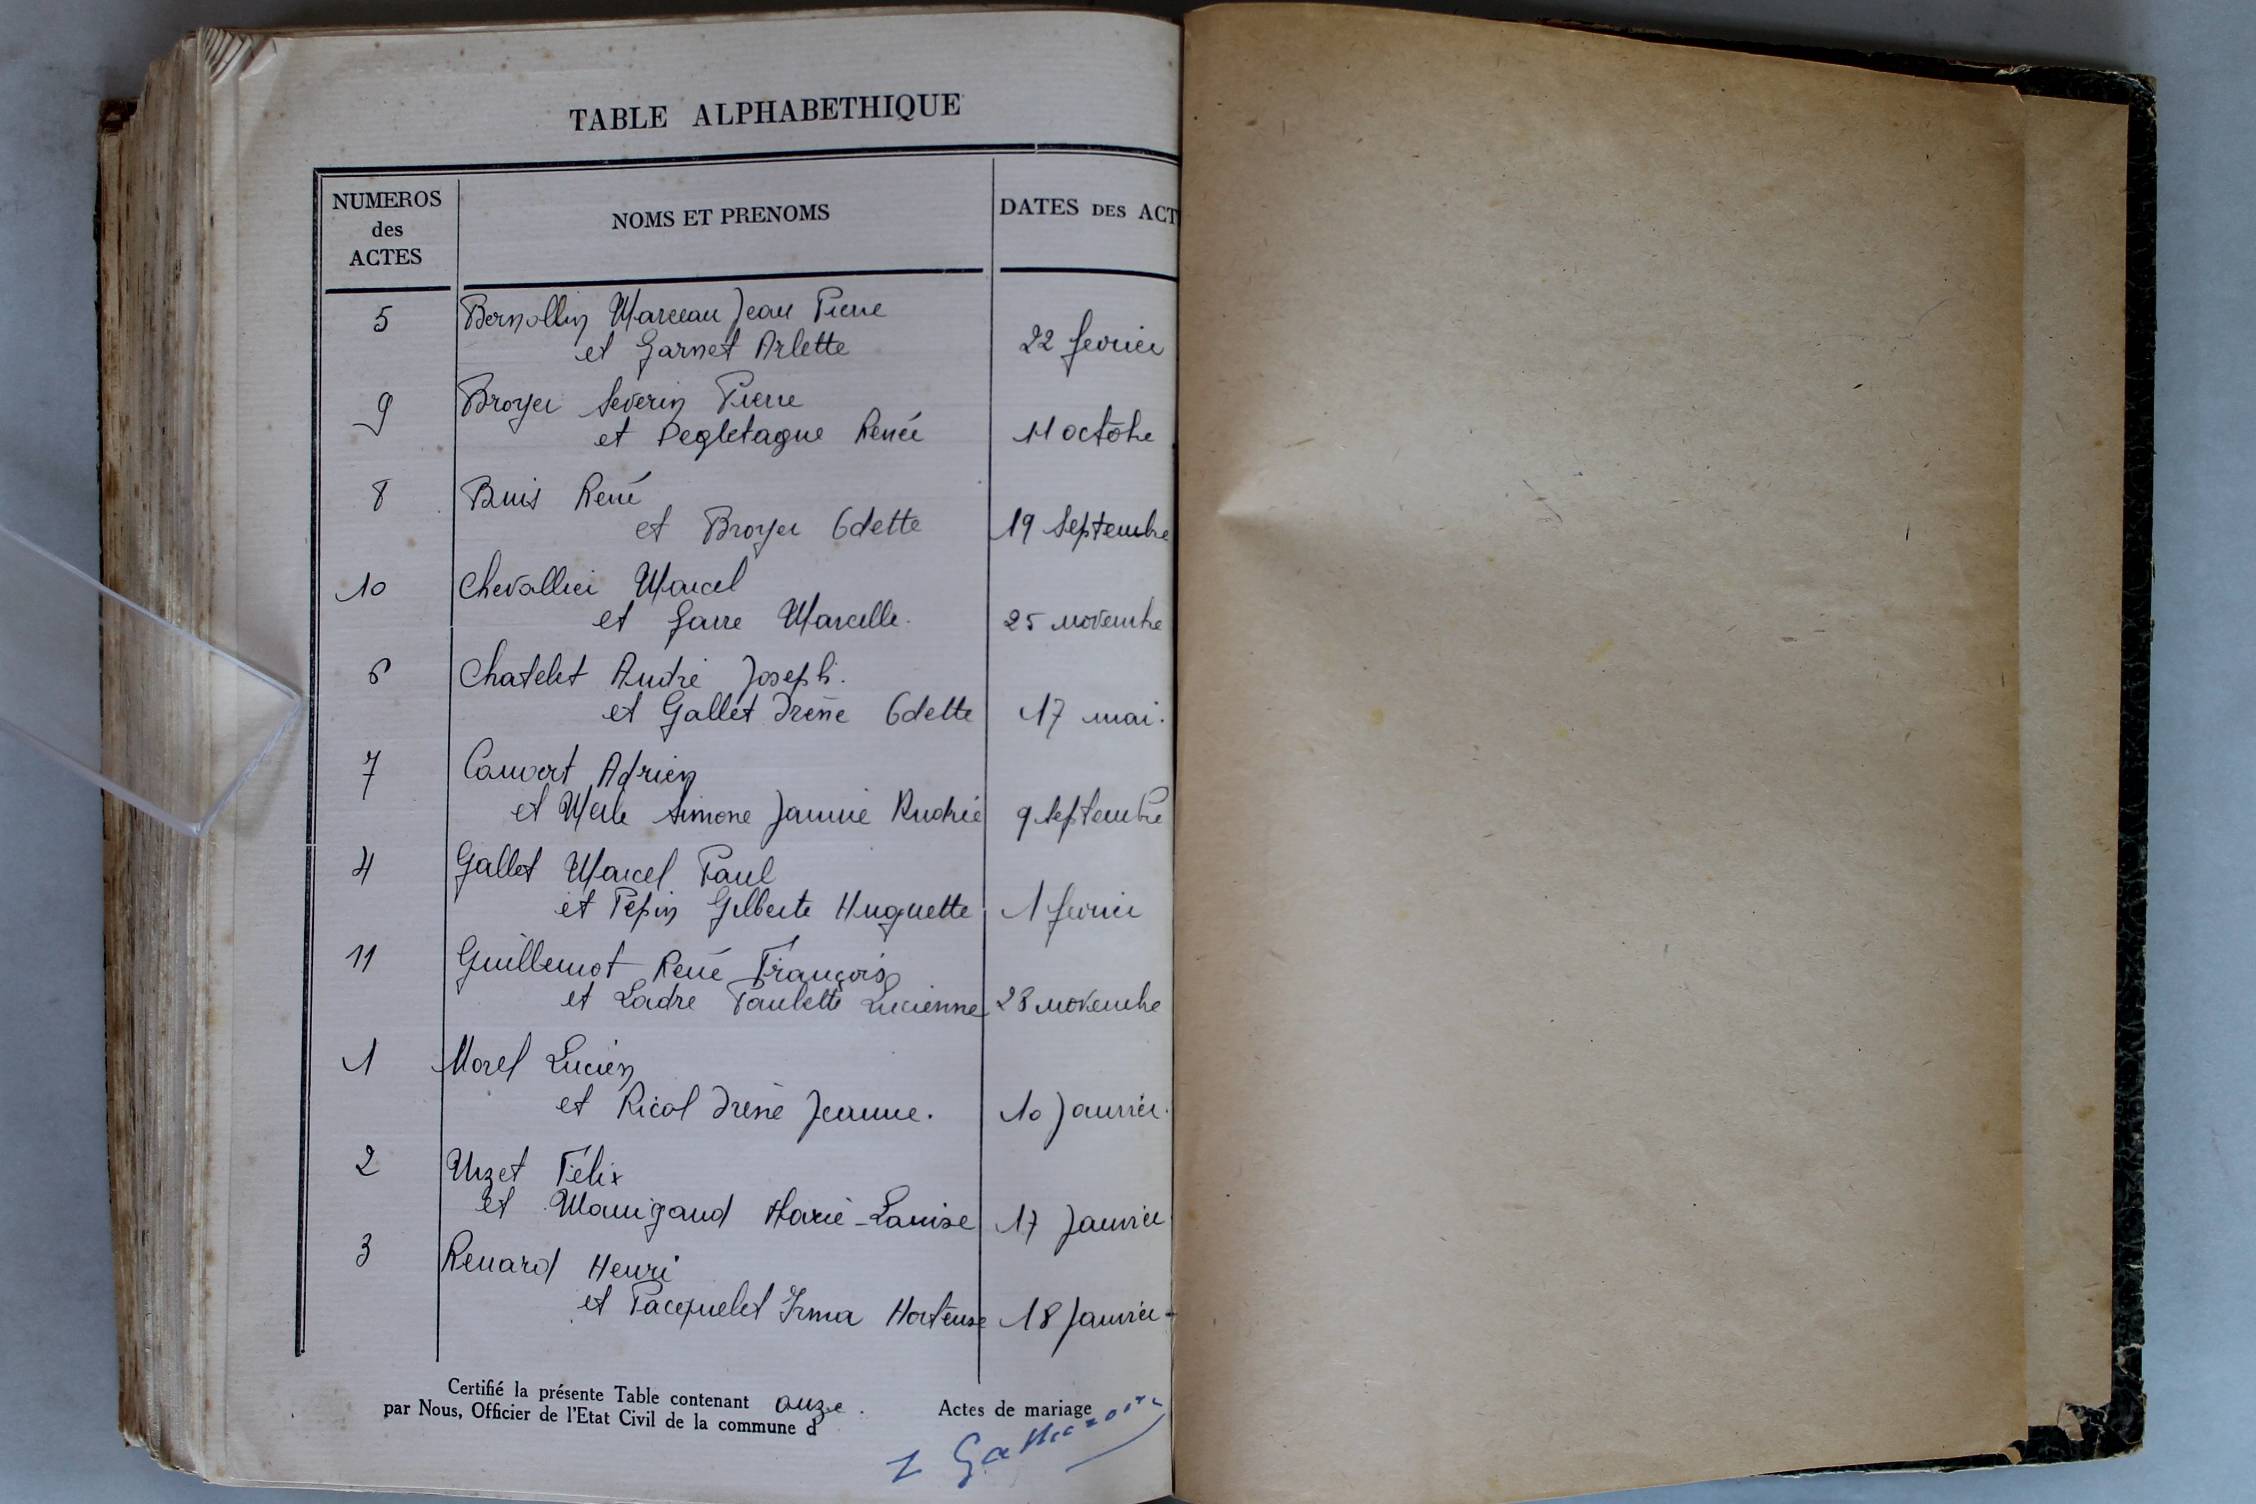 TABLE ALPHABETHIQUE
NUMEROS
des
ACTES
NOMS ET PRENOMS
DATES DES ACT
5 Bernollin Marceau Jean Pierre
et Garnet Arlette 22 fevrier
9 Broyer Severin Pierre
et Degletagne Renée 11 octobre
8 Buis René
et Broyer Odette 19 Septembre
10 Chevallier Marcel
et Garre Marcelle. 25 novembre
6 Chatelet André Joseph.
et Gallet Irène Odette 17 mai.
7 Convert Adrien
et Merle Simone Jannie Andrée 9 Septembre
4 Gallet Marcel Paul
et Pepin Gilberte Huguette 1 fevrier
11 Guillemot René François
et Ladre Paulette Lucienne 28 novembre
1 Morel Lucien
et Ricol Irène Jeanne. 10 Janvier.
2 Felix
et Marie-Louise 17 Janvier
3 Renard Henri
et Pacquelet Irma Hortense 18 Janvier -
Certifié la présente Table contenant onze. Actes de mariage
par Nous, Officier de l'Etat Civil de la commune d